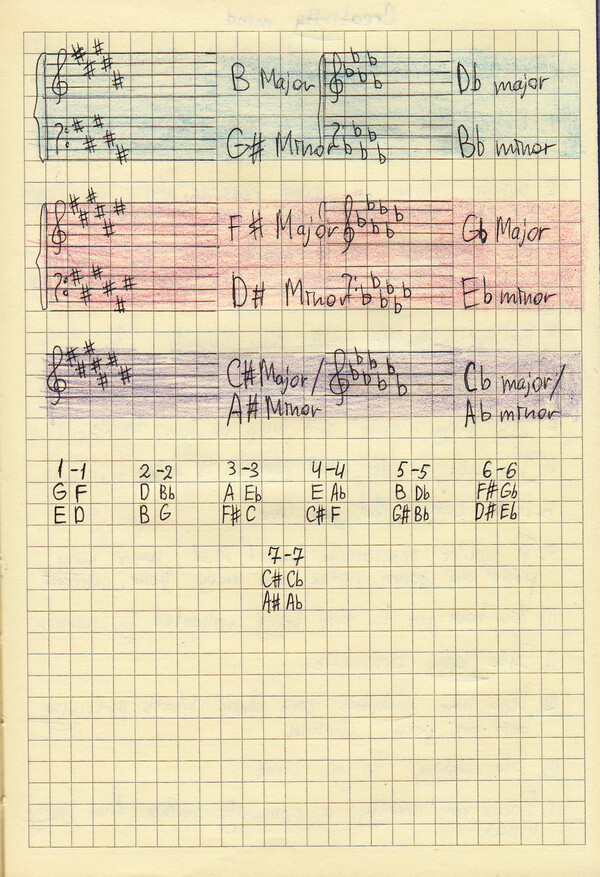 B Major Db major
G# Minor Bb minor
F# Major Gb Major
D# Minor Eb minor
C# Major/ Cb major/
A# Minor Ab minor
1-1 2-2 3-3 4-4 5-5 6-6
G F D Bb A Eb E Ab B Db F# Gb
E D B G F# C C# F G# Bb D# Eb
7-7
C# Cb
A# Ab